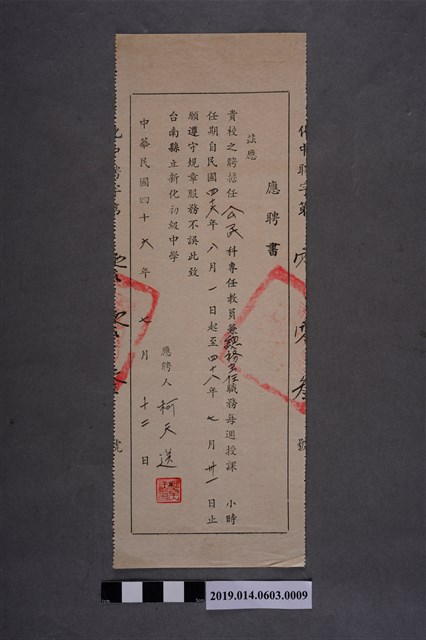 化中聘字第
零零叁
號
應聘書
茲應
貴校之聘擔任公民科專任教員兼總務主任職務每週授課 小時
任期自民國四十六年八月一日起至四十八年七月卅一日止
願遵守規章服務不誤此致
台南縣立新化初級中學
應聘人 柯天送
中華民國四十六年七月十二日
化中聘字第
號
2019.014.0603.0009